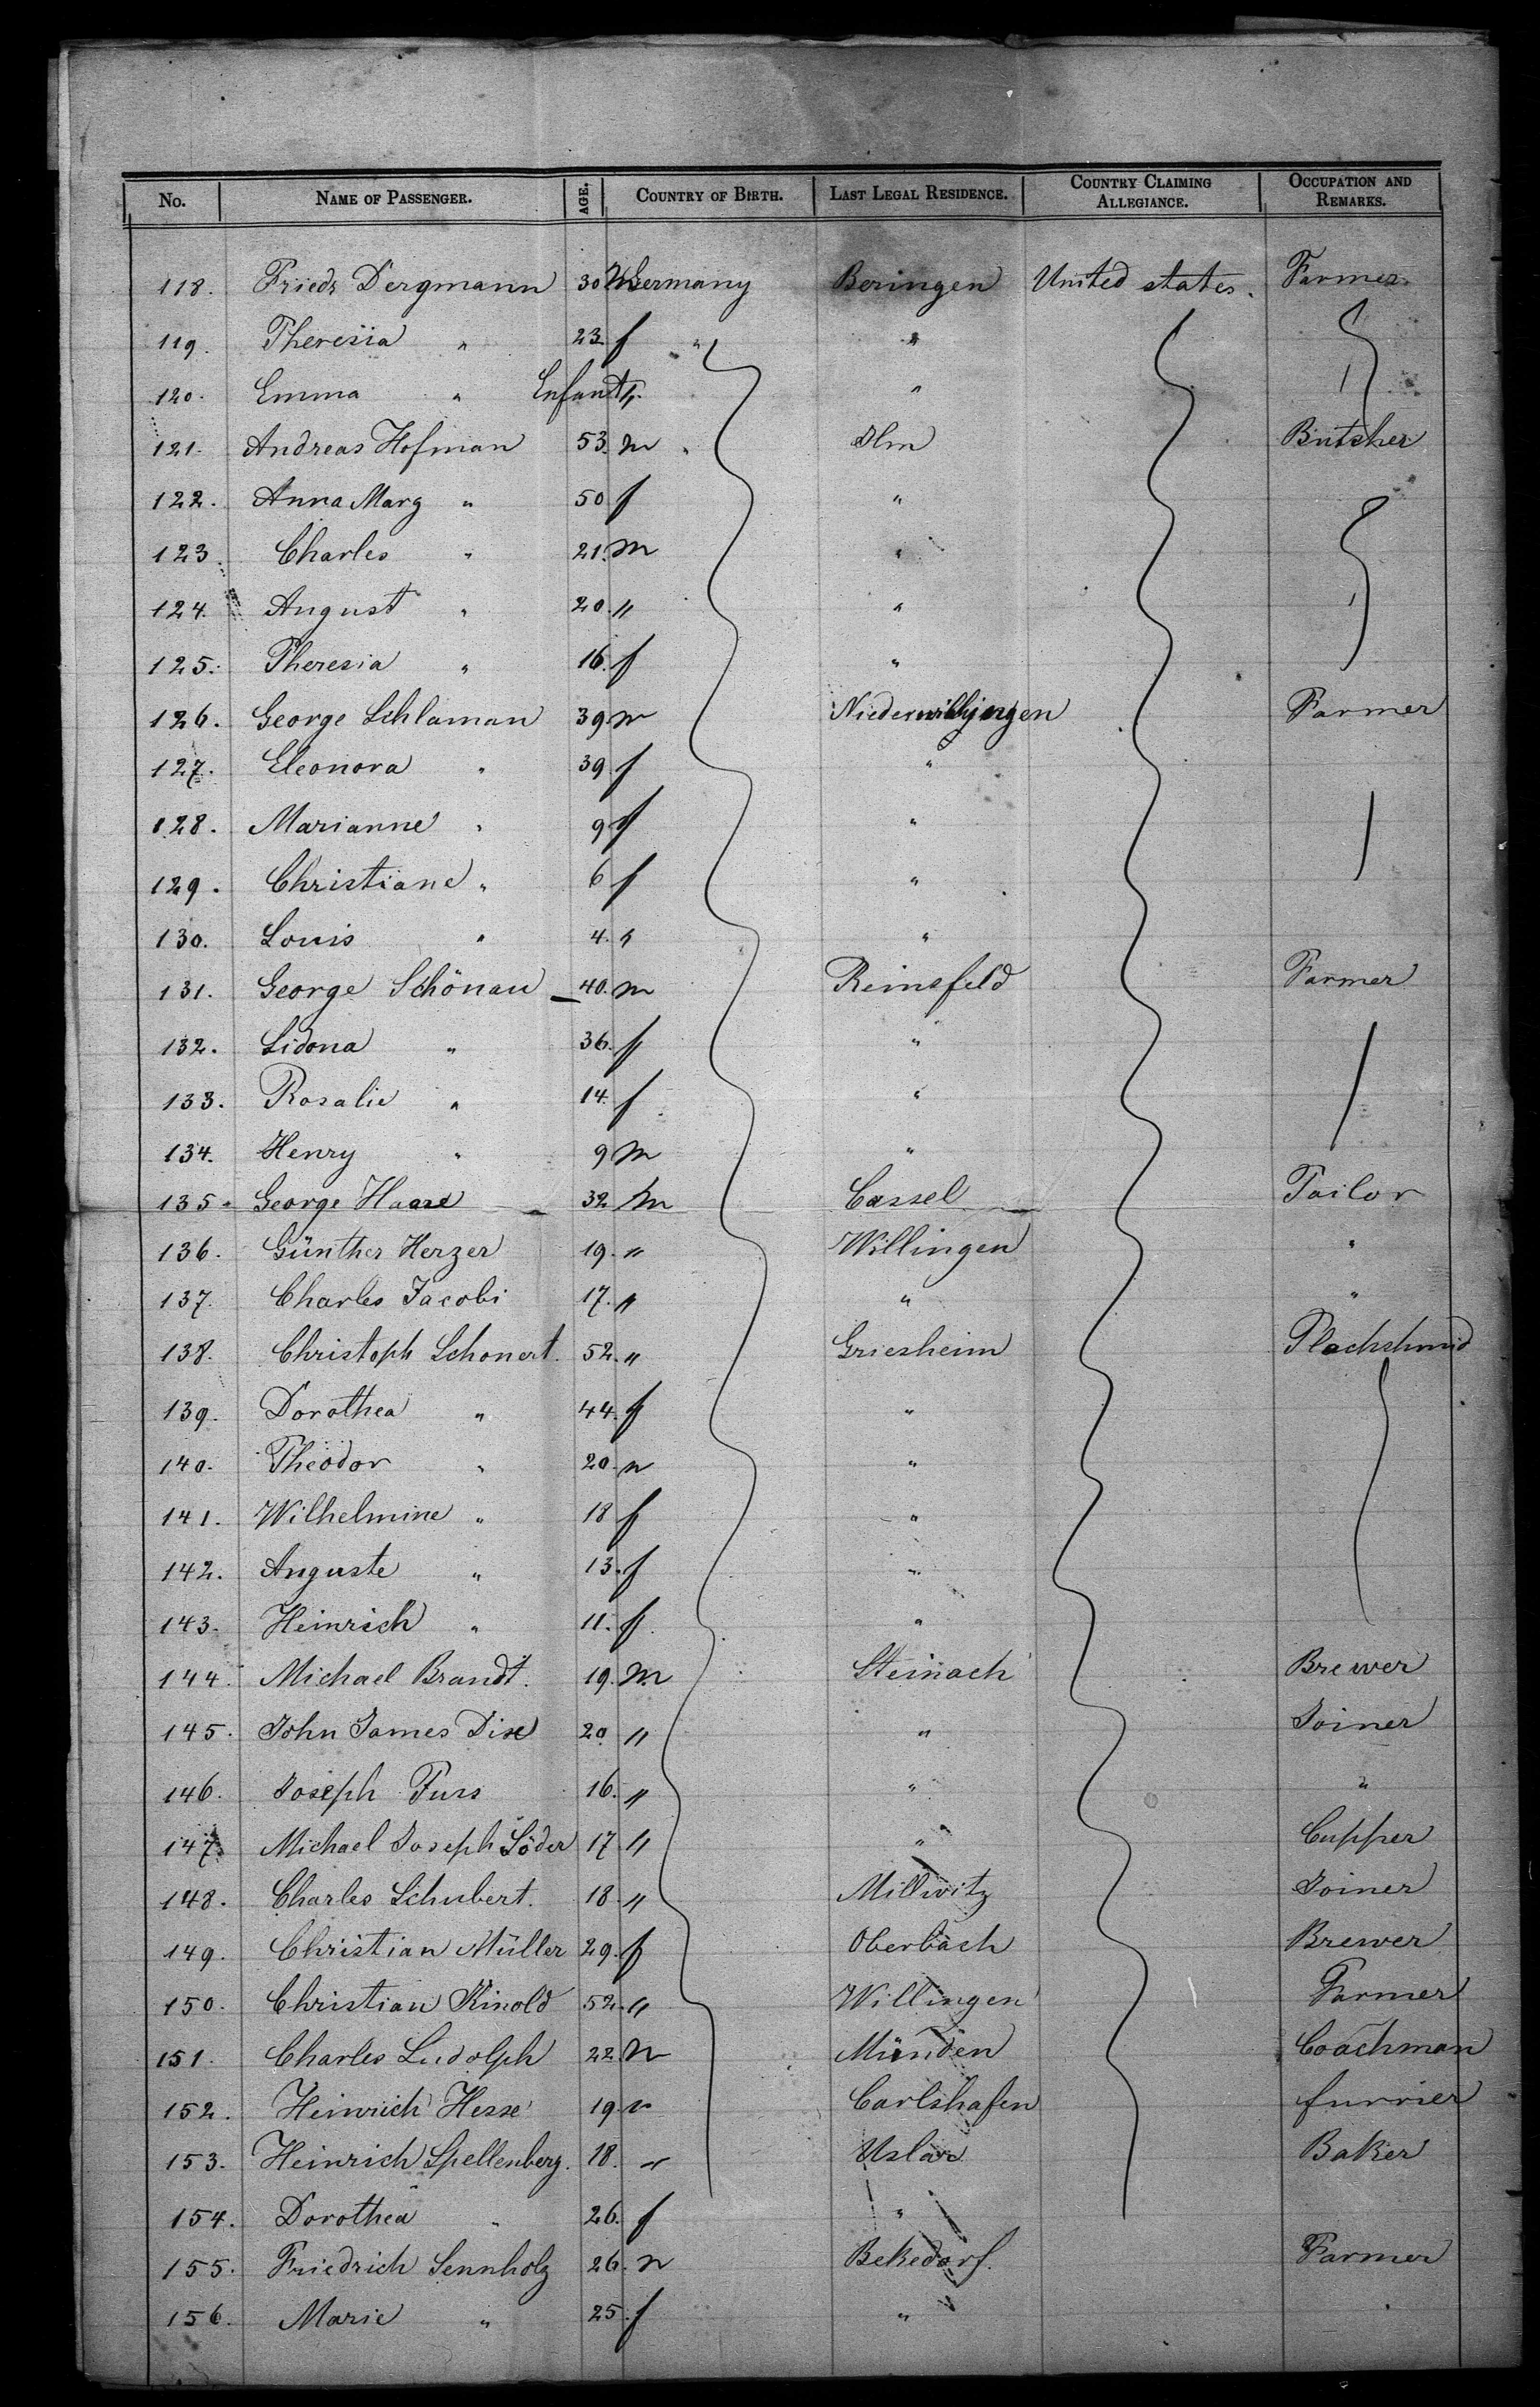 No. NAME OF PASSENGER. AGE. COUNTRY OF BIRTH. LAST LEGAL RESIDENCE. COUNTRY CLAIMING ALLEGIANCE. OCCUPATION AND REMARKS.
118. Friedr Dergmann 30 m Germany Beringen United states. Farmer
119. Theresia " 23 f " "
120. Emma " Enfant f. "
121. Andreas Hofman 53. m " Ilm Butcher
122. Anna Marg " 50 f "
123. Charles " 21. m "
124. August " 20. " "
125. Theresia " 16. f "
126. George Schlaman 39. m Farmer
127. Eleonora " 39. f "
128. Marianne " 9 f "
129. Christiane " 6 f "
130. Louis " 4. " "
131. George Schönau 40. m Reinsfeld Farmer
132. Sidona " 36. f "
133. Rosalie " 14. f "
134. Henry " 9 m "
135. George Haase 32 m Cassel Tailor
136. Günther Herzer 19. " Willingen "
137. Charles Jacobi 17. " " "
138. Christoph Schonert. 52. " Griesheim
139. Dorothea " 44. f "
140. Theodor " 20. m "
141. Wilhelmine " 18 f "
142. Auguste " 13. f "
143. Heinrich " 11. f. "
144. Michael Brandt. 19. m Steinach Brewer
145. John James Dix 20. " " Joiner
146. Joseph Furs 16. " " "
147. Michael Joseph Söder 17 " " Cupper
148. Charles Schubert. 18. " Millwitz Joiner
149. Christian Müller 29. f Oberbach Brewer
150. Christian Rinold 52. " Willingen Farmer
151. Charles Ludolph 22. m Münden Coachman
152. Heinrich Hesse 19. " Carlshafen furrier
153. Heinrich Spellenberg. 18. " Uslar Baker
154. Dorothea " 26. f "
155. Friedrich Sennholz 26. m Bekedorf. Farmer
156. Marie " 25. f "